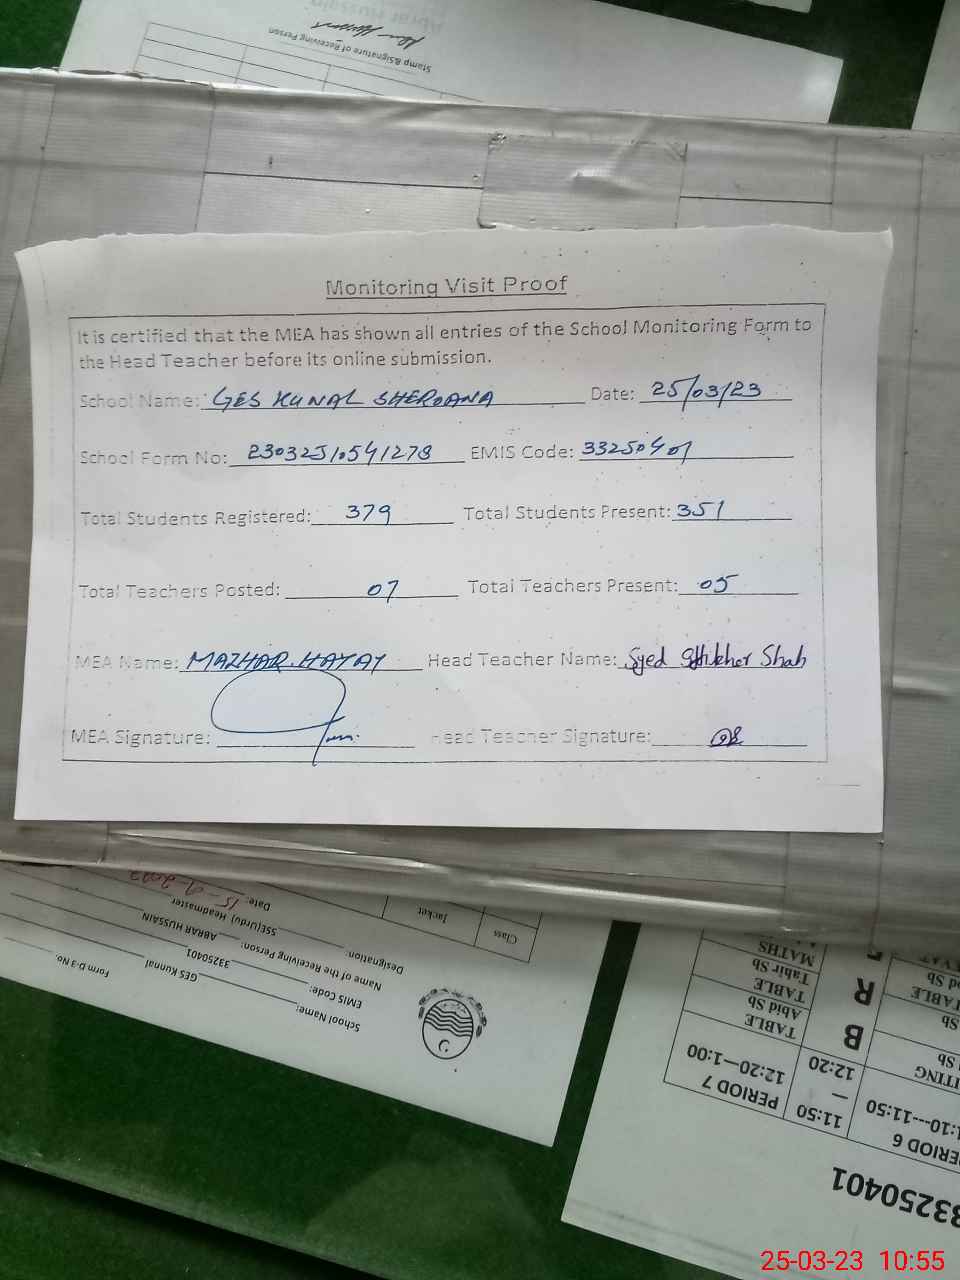 Stamp & Signature of Receiving Person
Monitoring Visit Proof
It is certified that the MEA has shown all entries of the School Monitoring Form to
the Head Teacher before its online submission.
School Name: GES KUNAL SHEROANA Date: 25/03/23
School Form No: 23032510541278 EMIS Code: 33250401
Total Students Registered: 379 Total Students Present: 351
Total Teachers Posted: 07 Total Teachers Present: 05
MEA Name: MAZHAR HAYAT Head Teacher Name: Syed Shah
MEA Signature: Head Teacher Signature:
Form D-3 No.
School Name: GES Kunnal
EMIS Code: 33250401
Name of the Receiving Person: ABRAR HUSSAIN
Designation: SSE(Urdu) Headmaster
Date: 15-9-2022
Class Jacket
33250401
PERIOD 6 11:50 PERIOD 7
1:10---11:50 – 12:20—1:00
12:20
TABLE
B Abid Sb
TABLE
R Tahir Sb
MATHS
25-03-23 10:55